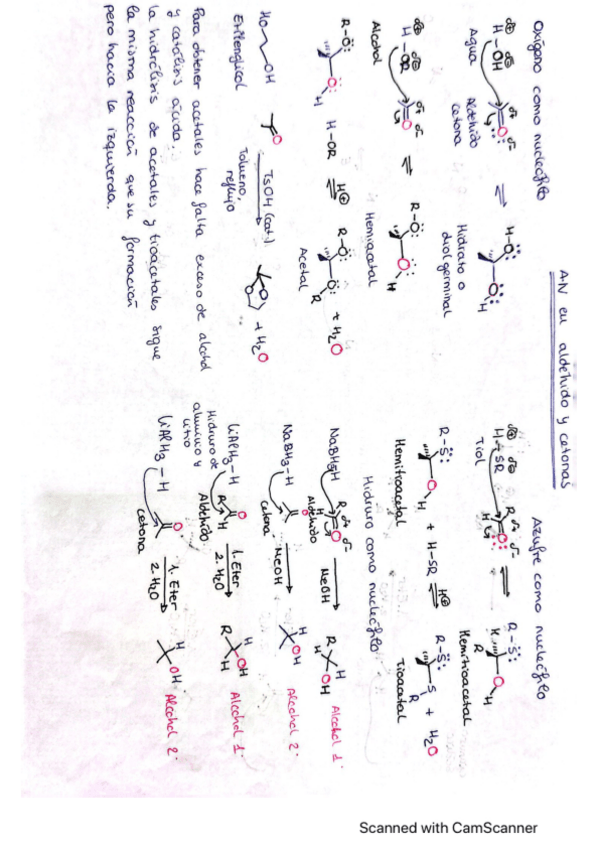 AN en aldehido y cetonas
Oxígeno como nucleófilo
H-OH
Agua
Aldehido
cetona
Hidrato o
diol geminal
H-OR
Alcohol
Hemiacetal
H-OR
Acetal
+ H2O
HO OH
Etilenglicol
TsOH (cat.)
Tolueno,
reflujo
+ H2O
Para obtener acetales hace falta exceso de alcohol
y catálisis ácida.
la hidrólisis de acetales y tioacetales sigue
la misma reacción que su formación
pero hacia la izquierda.
Azufre como nucleófilo
H-SR
Tiol
Hemitioacetal
Hemitioacetal
+ H-SR
Tioacetal
+ H2O
Hidruro como nucleófilo
NaBH3H
Aldehido
MeOH
Alcohol 1º
NaBH3-H
cetona
MeOH
Alcohol 2º
LiAlH3-H
Hidruro de
aluminio y
litio
Aldehido
1. Eter
2. H2O
Alcohol 1º
LiAlH3-H
cetona
1. Eter
2. H2O
Alcohol 2º
Scanned with CamScanner